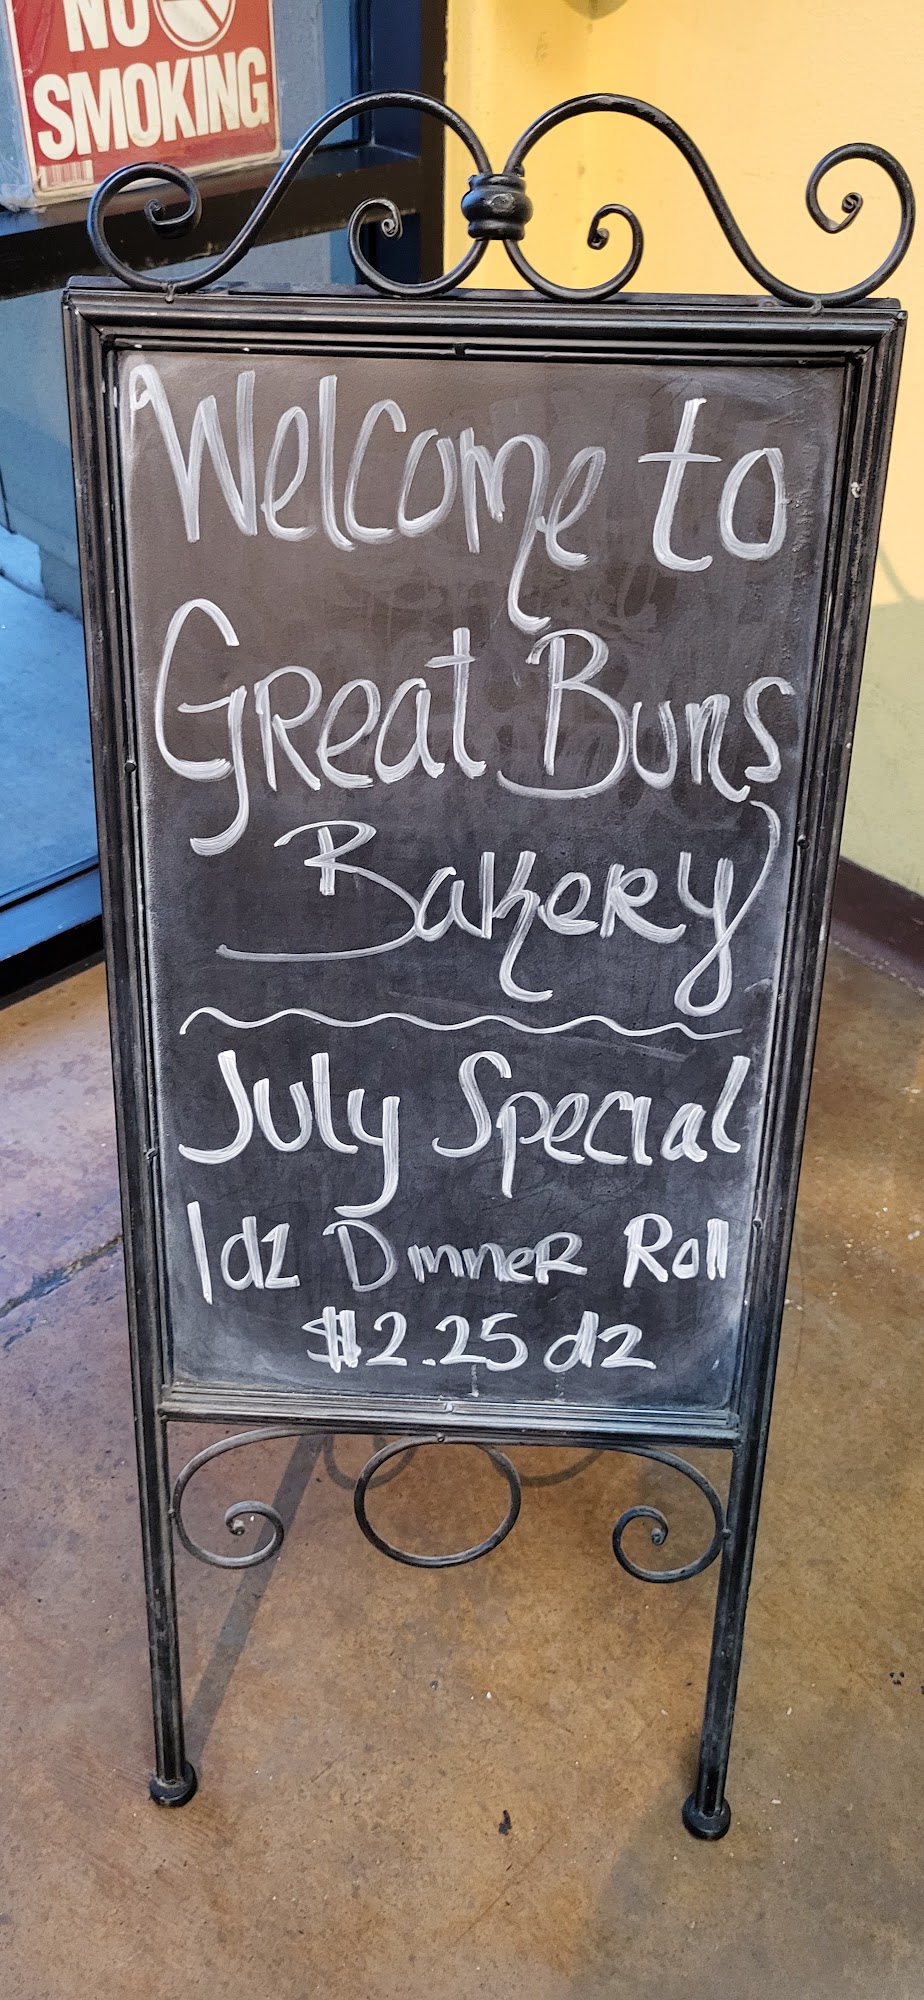 NO
SMOKING
Welcome to
Great Buns
Bakery
July Special
1dz Dinner Roll
$2.25 dz